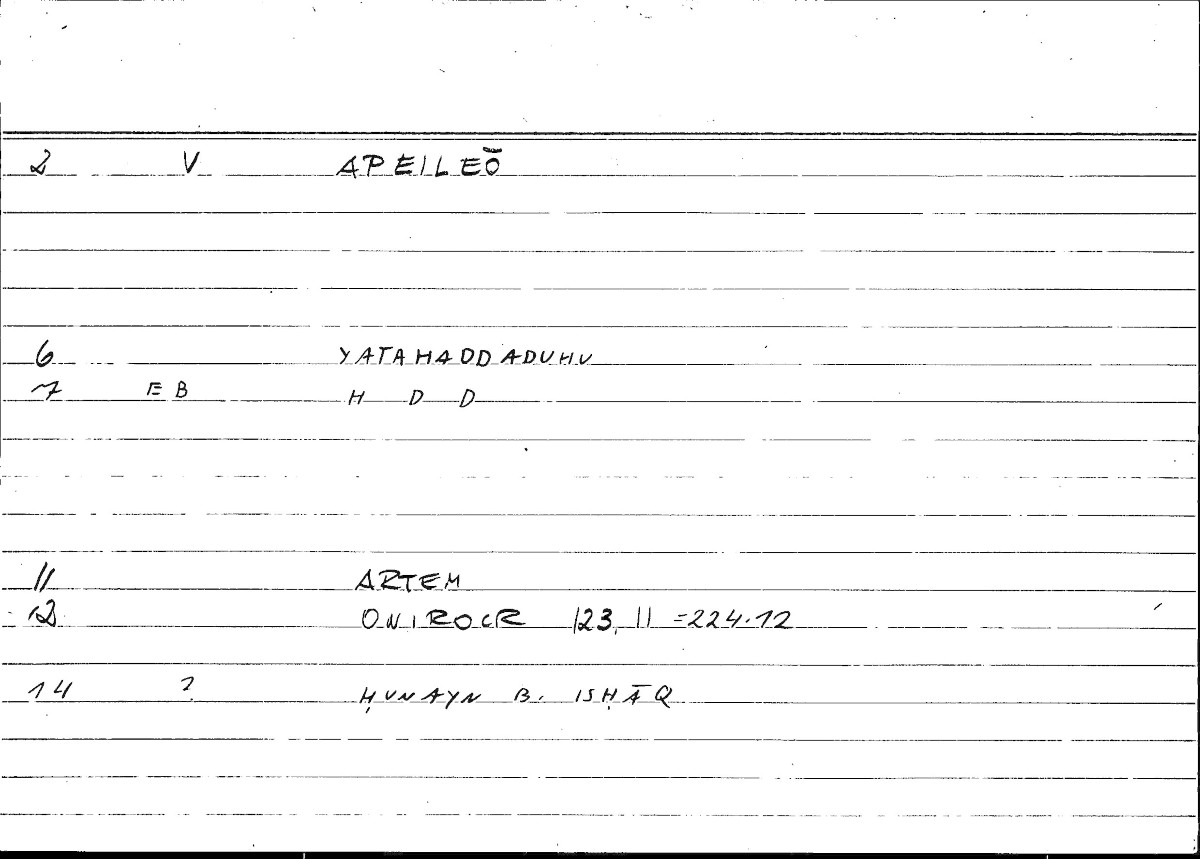 2 V APEILEŌ
6 YATAHADDADUHU
7 EB H D D
11 ARTEM
12 ONIROCR 123, 11 =224.12
14 ? ḤUNAYN B. ISḤĀQ